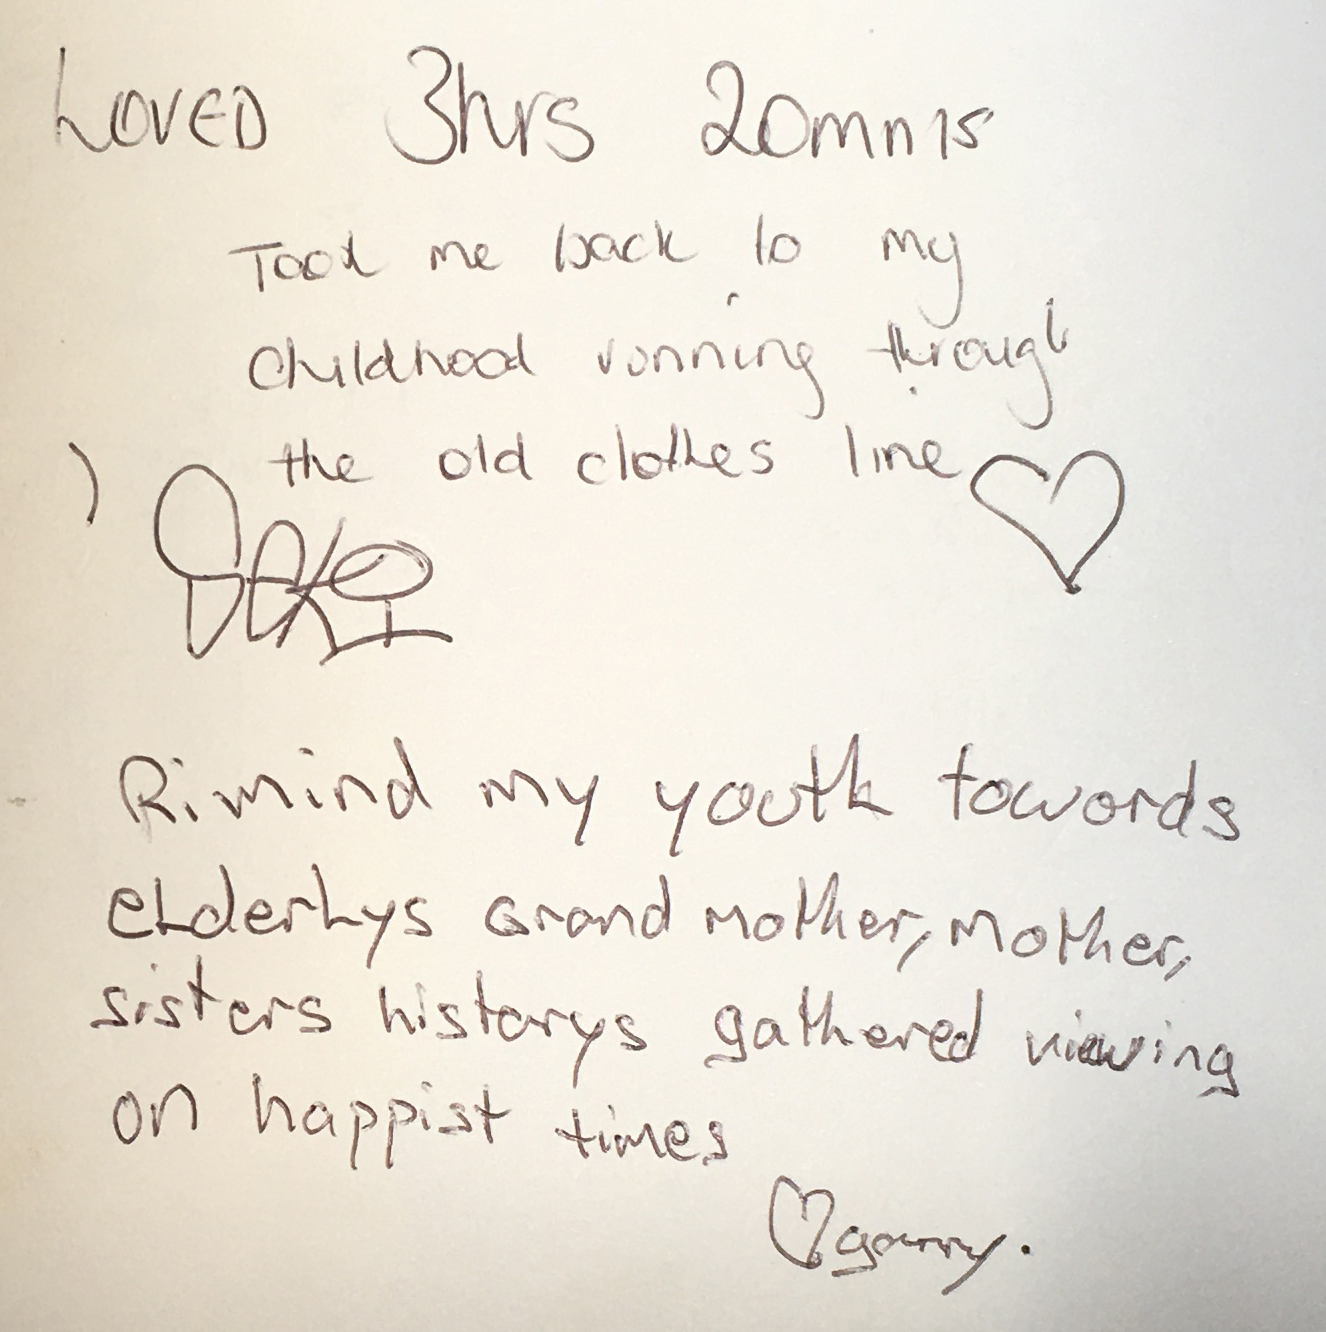 LOVED 3hrs 20mn1s
Took me back to my
childhood running through
the old clothes line
Rimind my youth towords
eLderLys Grand mother, Mother,
sisters historys gathered viewing
on happist times
garry.